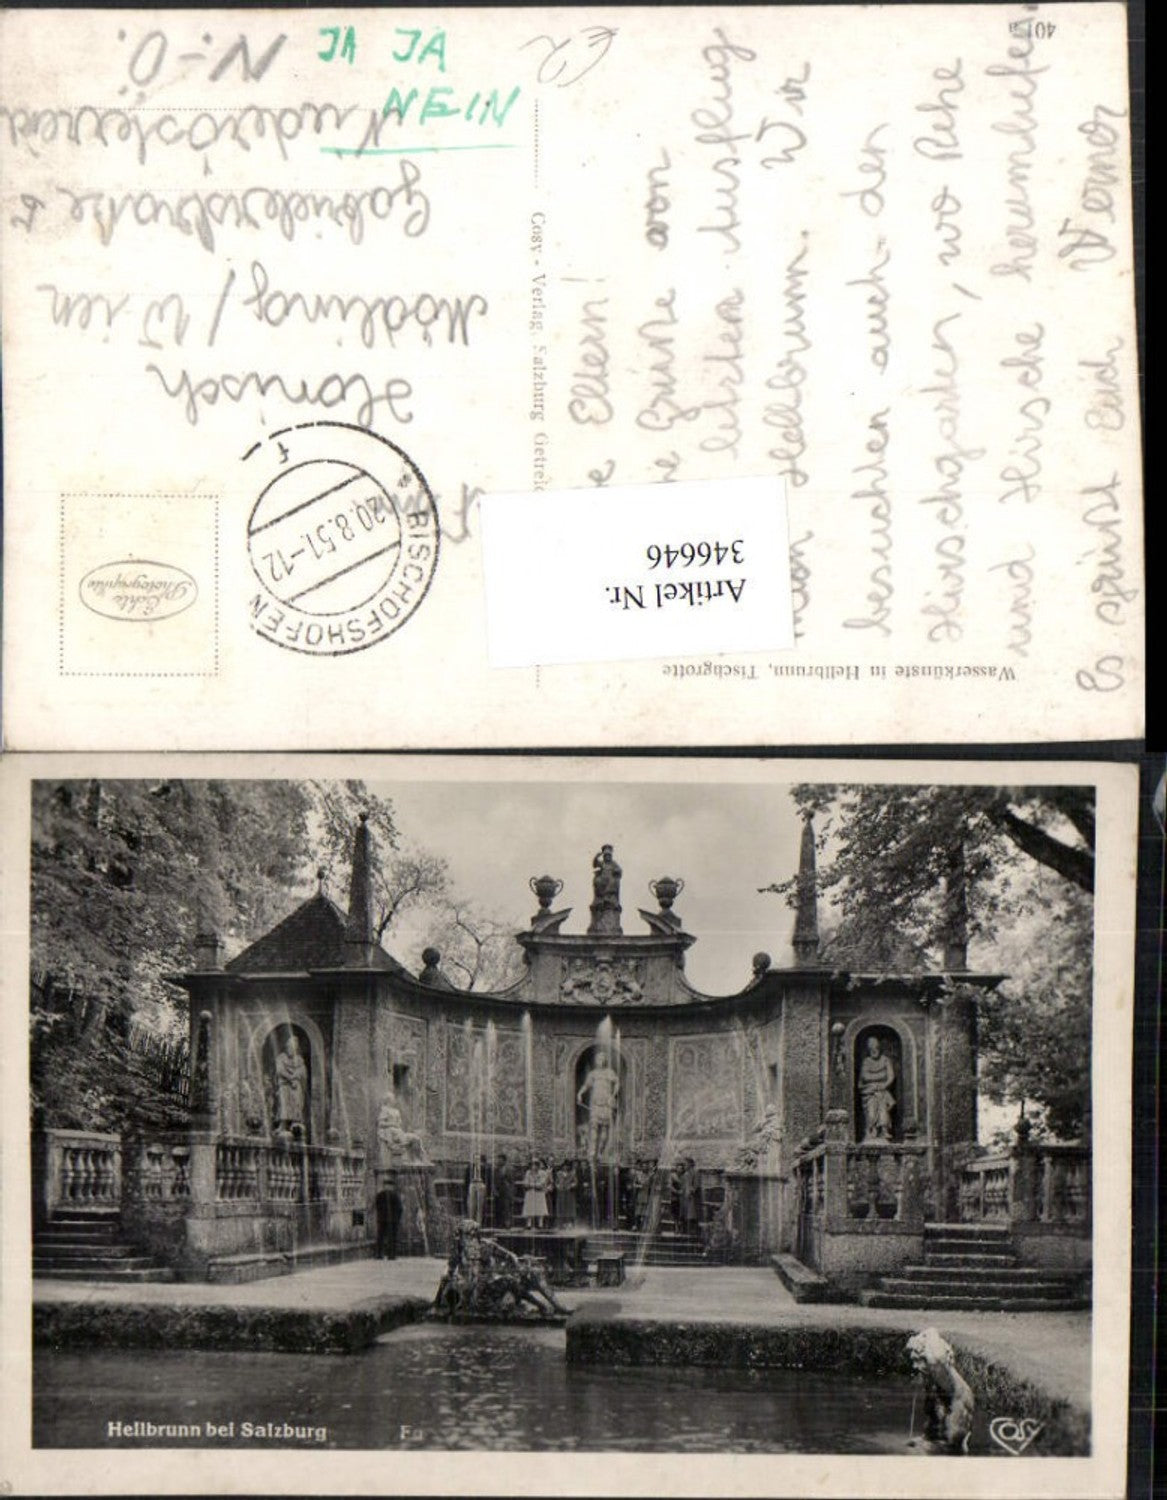 JA JA
NEIN
401a
Liebe Eltern!
Grüße von
letzten Ausflug
nach Hellbrunn. Wir
besuchten auch den
Hirschgarten, wo Rehe
und Hirsche herumlufen
Es grüsst Euch Werner
Hanisch
Mödling / Wien
Gabrielerstraße 5
Niederösterreich
N.-Ö.
BISCHOFSHOFEN
20.8.51-12
f
Echte
Photographie
Cosy - Verlag, Salzburg Getreid
Wasserkünste in Hellbrunn, Tischgrotte
Artikel Nr.
346646
Hellbrunn bei Salzburg
COSY